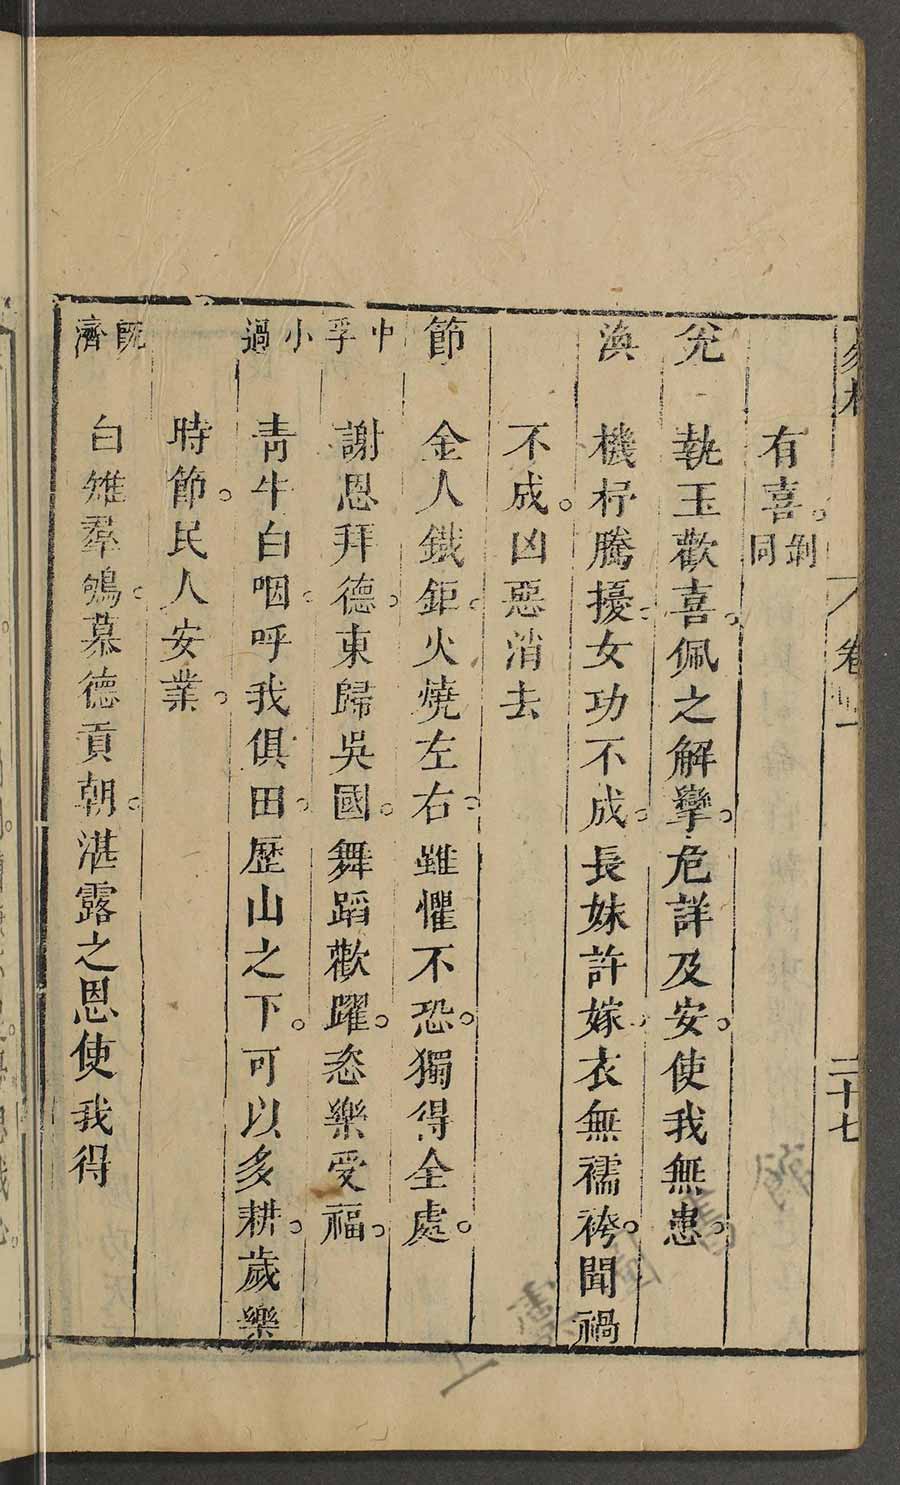 卷 二十七
有喜。剝同
兌 執玉歡喜。佩之解攣。危詳及安。使我無患。
渙 機杼騰擾。女功不成。長妹許嫁。衣無襦袴。聞禍
不成。凶惡消去
節 金人鐵鉅。火燒左右。雖懼不恐。獨得全處。
中孚 謝恩拜德。東歸吳國。舞蹈歡躍。恣樂受福。
小過 青牛白咽。呼我俱田。歷山之下。可以多耕。歲樂
時節。民人安業。
既濟 白雉羣鴝。慕德貢朝。湛露之恩使我得